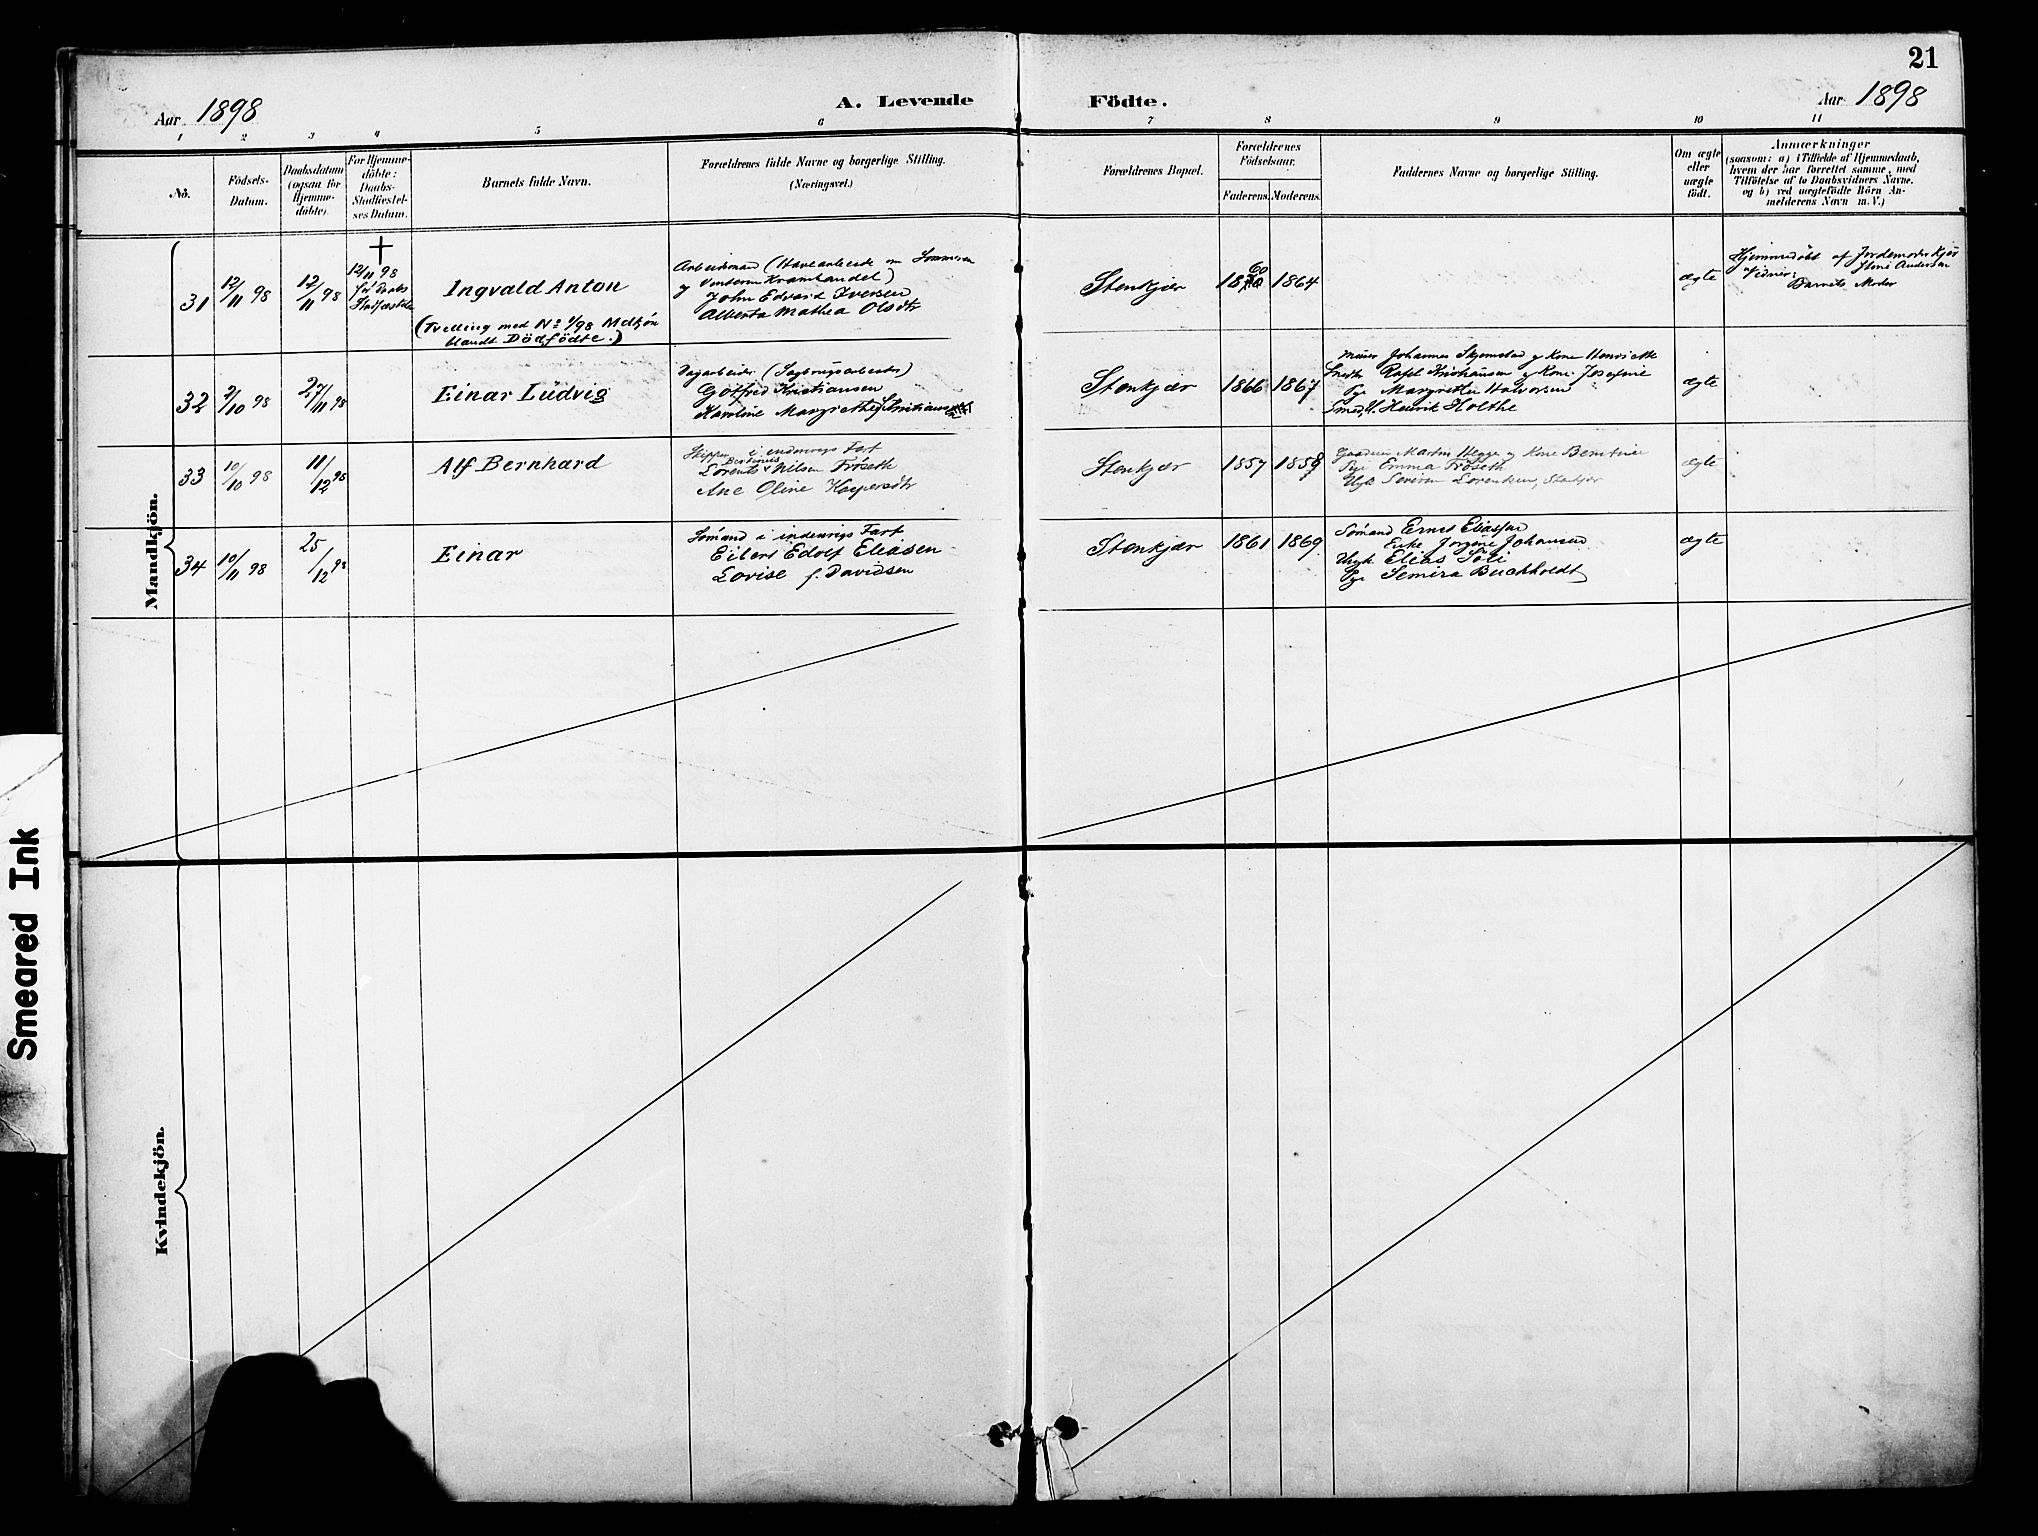 21
Aar 1898
A. Levende
Födte.
Aar 1898
1 2 3 4 5 6 7 8 9 10 11
No.
Födsels-
Datum.
Daabsdatum
(ogsaa for
Hjemme-
döbte).
For Hjemme-
döbte:
Daabs-
Stadfæstel-
ses Datum.
Barnets fulde Navn.
Forældrenes fulde Navne og borgerlige Stilling.
(Næringsvei.)
Forældrenes Bopæl.
Forældrenes
Födselsaar.
Faderens. Moderens.
Faddernes Navne og borgerlige Stilling.
Om ægte
eller
uægte
födt.
Anmærkninger
(saasom: a) i Tilfælde af Hjemmedaab,
hvem der har forrettet samme, med
Tilföielse af to Daabsvidners Navne,
og b) ved uægtefödte Börn An-
melderens Navn m. V.)
Mandkjön.
31
12/11 98
12/11 98
12/11 98
før Daabs
Stadfæstelse
Ingvald Anton
(Tvilling med No 1/98 Mdkjön
blandt Dödfödte.)
Arbeidsmand (Havearbeide om Sommeren
og Vinteren Kramhandel)
John Edvard Iversen
Alberta Mathea Olsdtr
Stenkjær
60
1864
ægte
Hjemmedøbt af Jordemoder
Vidner: Andersen
Barnets Moder
32
2/10 98
27/11 98
Einar Lüdvig
Dagarbeider (Sagbrugsarbeider)
Gotfred Kristiansen
Karoline Margrethe
Stenkjær
1866
1867
Murer Johannes Skjemstad og Kone Henriette
Snedk Rafel Kristiansen og Kone Josefine
Pge Margrethe Halvorsen
Smed, U. Henrik Holthe
ægte
33
10/10 98
11/12 98
Alf Bernhard
Skipper i indenrigs Fart
Lorents Nilsen Fröseth
Ane Oline Kaspersdtr
Stenkjær
1857
1859
Martin Hegge og Kone Berntine
Pge Emma Fröseth
Ugk Severin Lorentsen, Stenkjær
ægte
34
10/11 98
25/12 98
Einar
Sømand i indenrigs Fart
Eilert Edolf Eliasen
Lovise f. Davidsen
Stenkjær
1861
1869
Sømand Ernst Eliassen
Enke Jørgine Johansen
Ugk Elias Söli
Pge Semira Buchholdt
ægte
Kvindekjön.
Smeared Ink